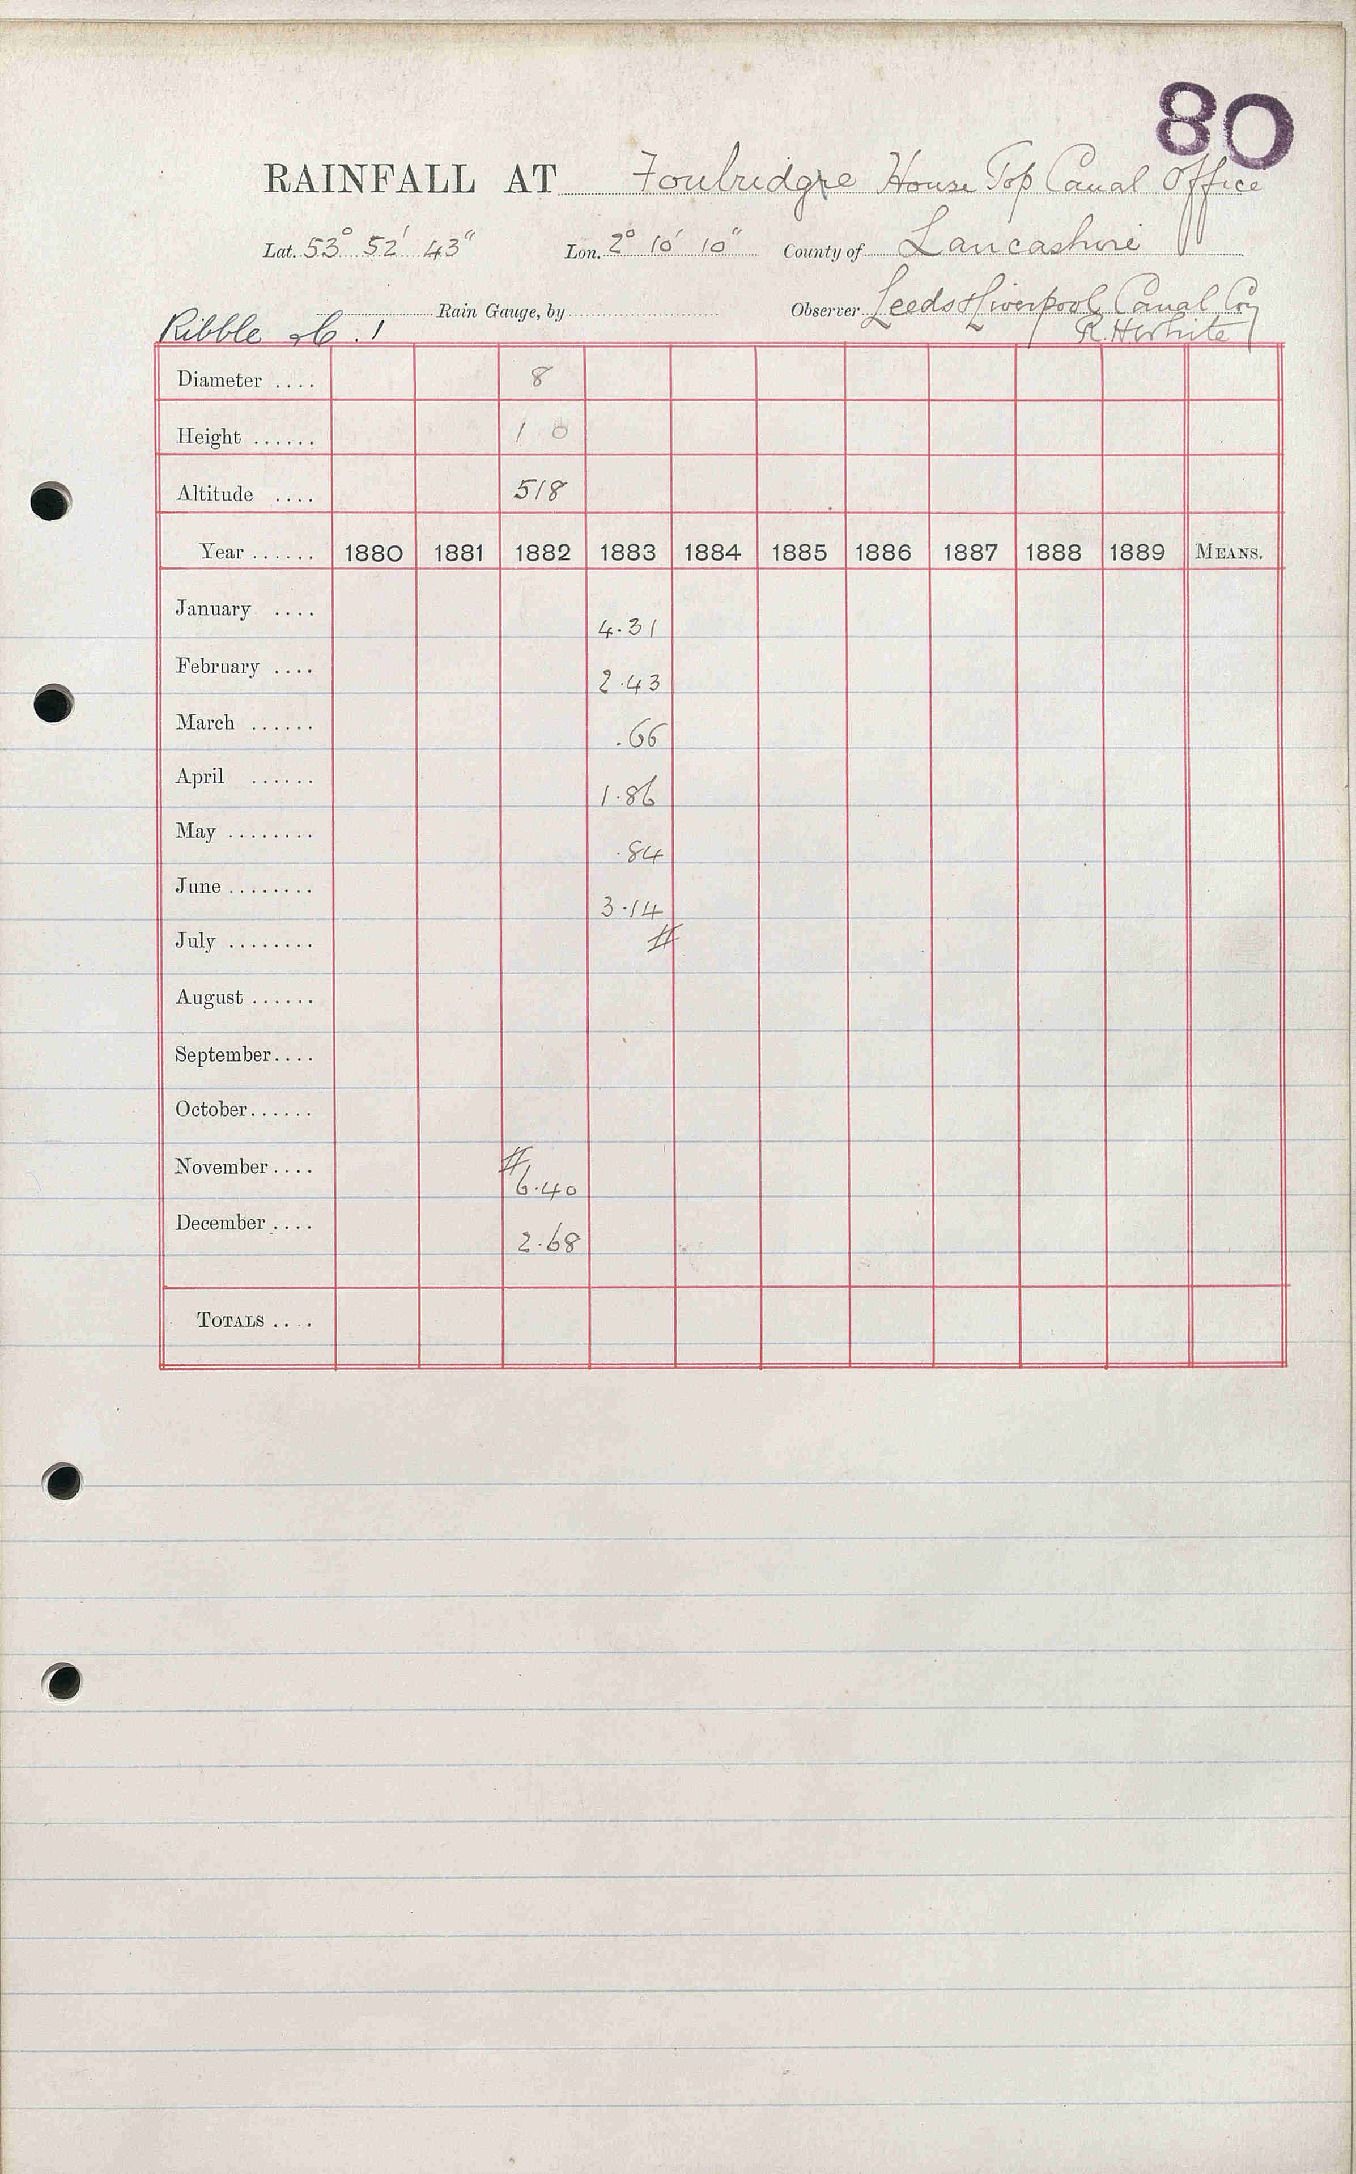 80
RAINFALL AT Foulbridge House Top Canal Office
Lat. 53° 52' 43" Lon. 2° 10' 10" County of Lancashire
Rain Gauge, by Observer Leeds & Liverpool Canal Coy
Ribble 1 R.H. White
Diameter .... 8
Height ...... 1 0
Altitude .... 518
Year ...... 1880 1881 1882 1883 1884 1885 1886 1887 1888 1889 MEANS.
January .... 4.31
February .... 2.43
March ...... .66
April ...... 1.86
May ........ .84
June ........ 3.14
July ........ #
August ......
September ....
October ......
November .... # 6.40
December .... 2.68
TOTALS ....